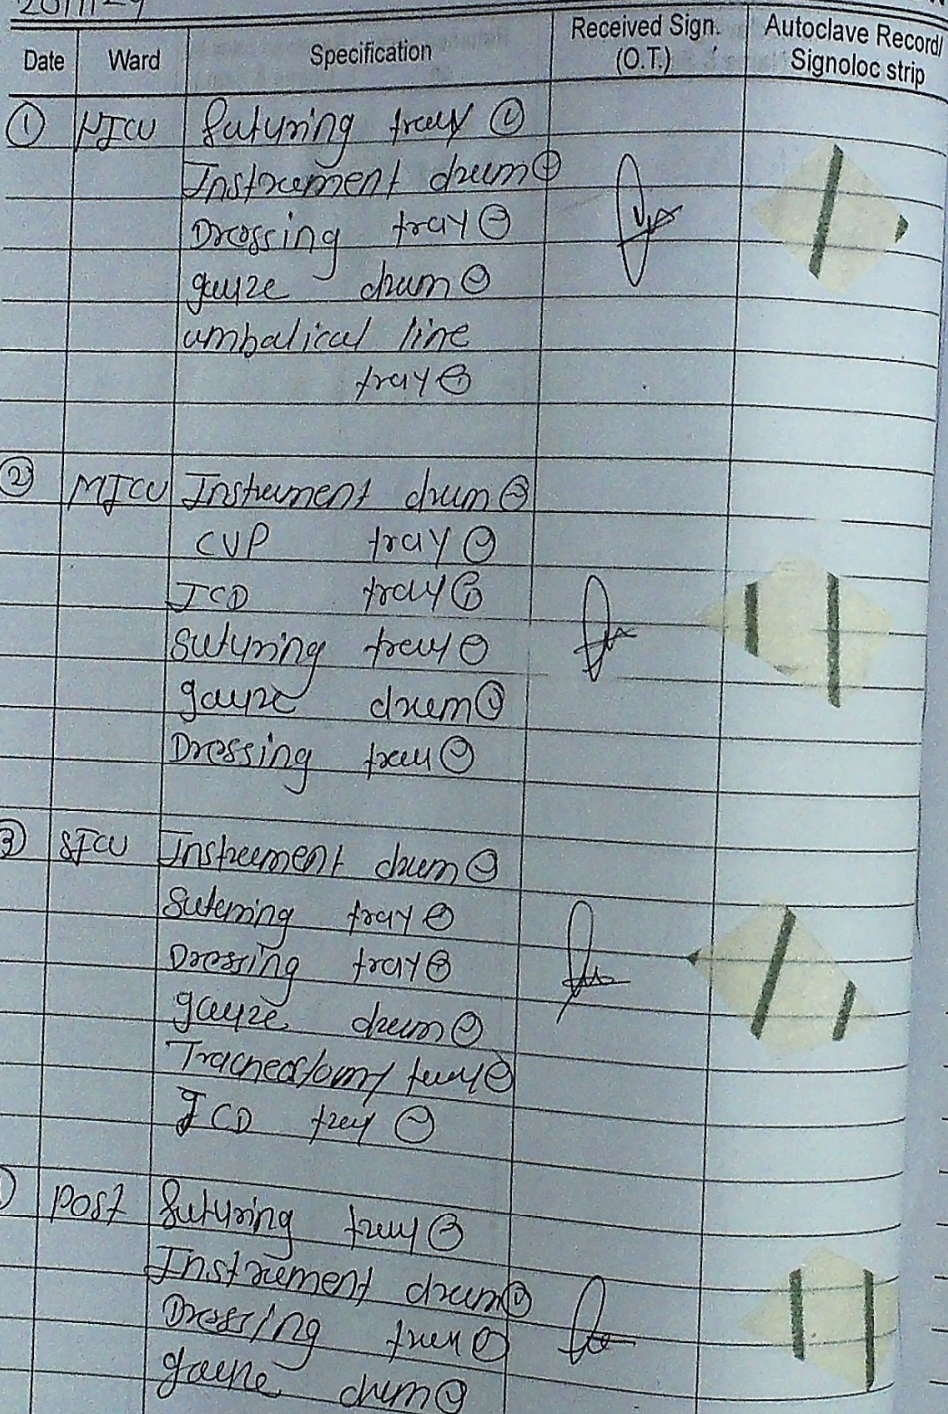 Date Ward Specification Received Sign. (O.T.) Autoclave Record/ Signoloc strip
① NICU Suturing tray ①
Instrument drum
Dressing tray
gauze drum
umbalical line
tray
② MICU Instrument drum
CVP tray
ICD tray
Suturing tray
gauze drum
Dressing tray
③ SICU Instrument drum
Suturing tray
Dressing tray
gauze drum
Tracheostomy tray
ICD tray
Post Suturing tray
Instrument drum
Dressing tray
gauze drum